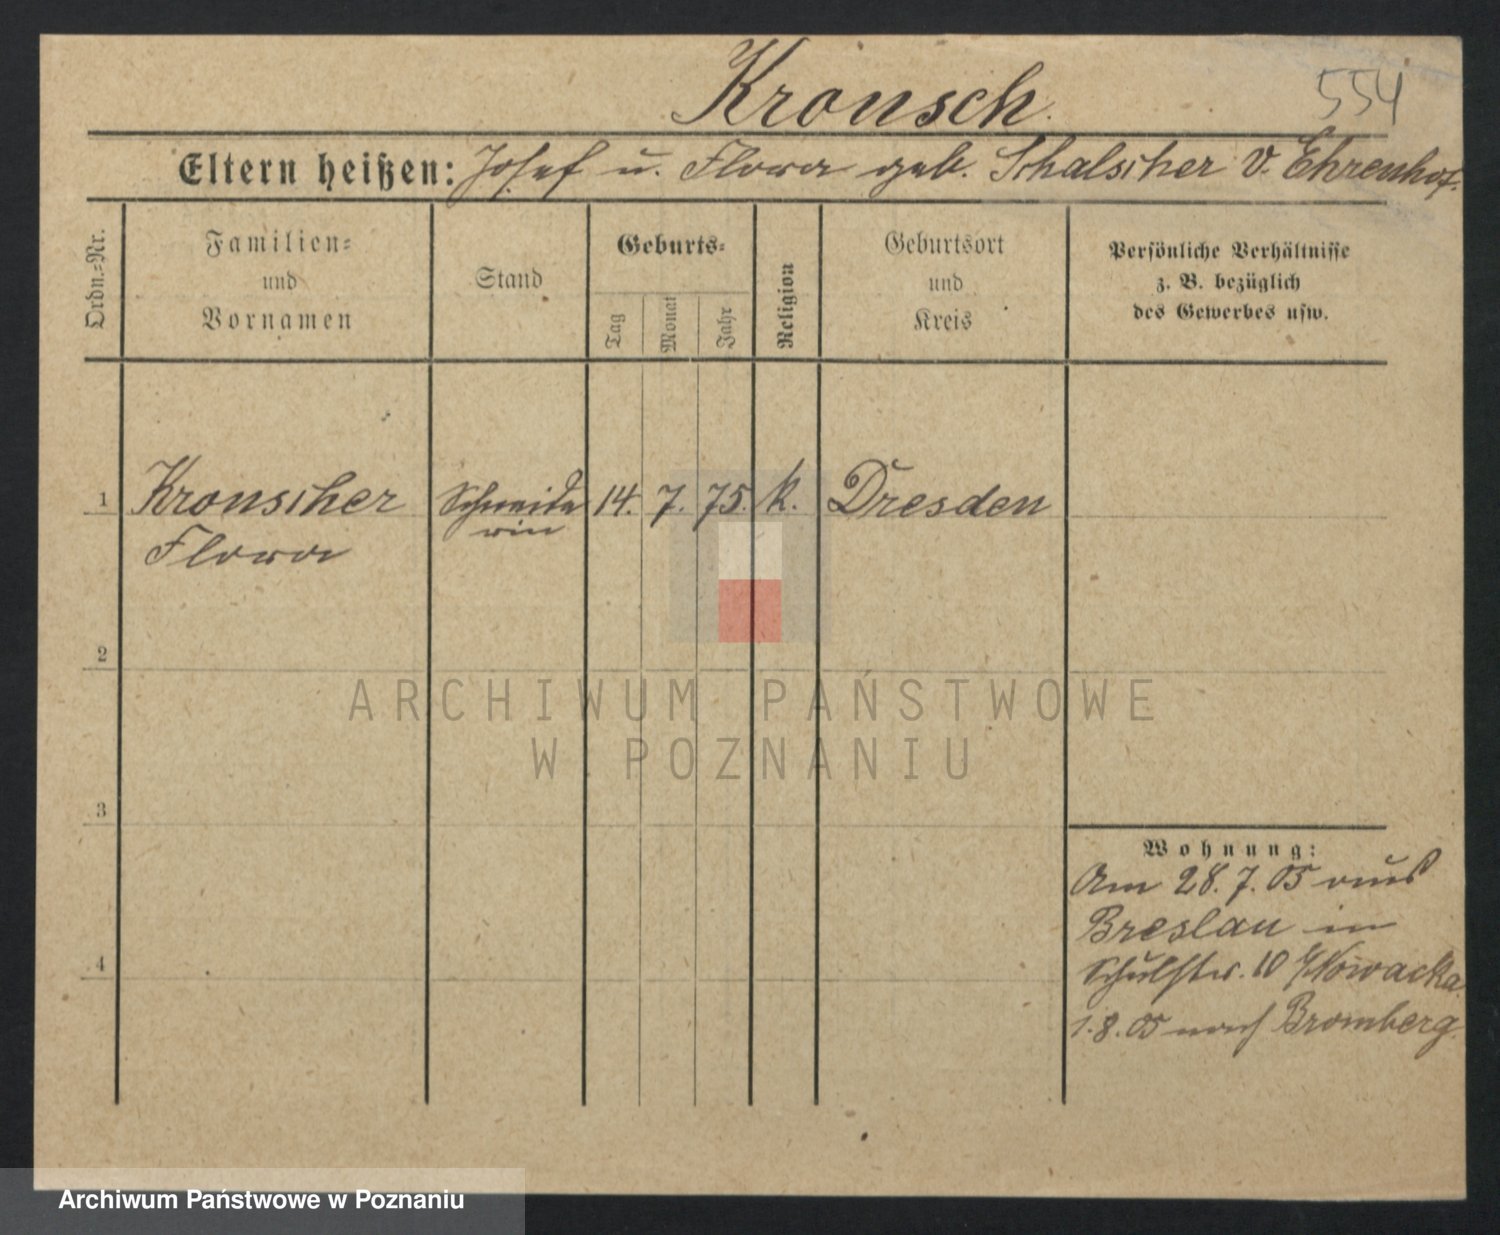 Kronsch.
554
Eltern heißen: Josef u. Flora geb. Schalscher v. Ehrenhof.
Ordn.=Nr.
Familien=
und
Vornamen
Stand
Geburts=
Tag
Monat
Jahr
Religion
Geburtsort
und
Kreis
Persönliche Verhältnisse
z. B. bezüglich
des Gewerbes usw.
1 Kronscher Schneide 14. 7. 75. k. Dresden
Flora rin
2
3
4
Wohnung:
Am 28. 7. 05 aus
Breslau in
Schulstr. 10 b/Nowacka.
1. 8. 05 nach Bromberg.
ARCHIWUM PAŃSTWOWE
W POZNANIU
Archiwum Państwowe w Poznaniu